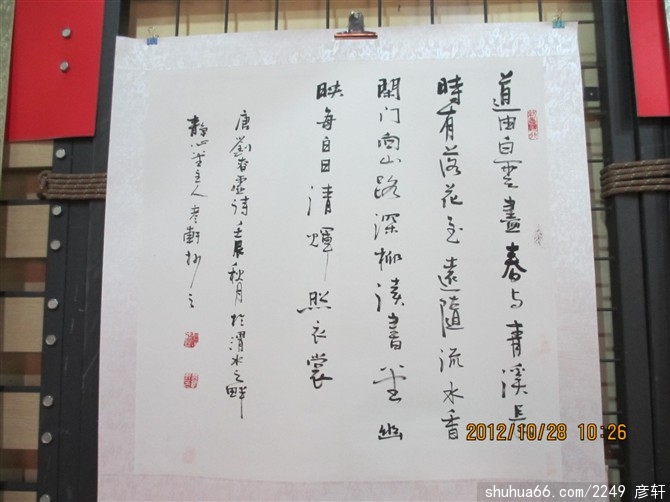 道由白雲盡春与青溪長
時有落花至遠隨流水香
閑门向山路深柳讀書堂幽
映每白日清輝照衣裳
唐劉眘虛詩壬辰秋月於渭水之畔
靜心堂主人彦軒抄之
2012/10/28 10:26
shuhua66.com/2249 彦轩